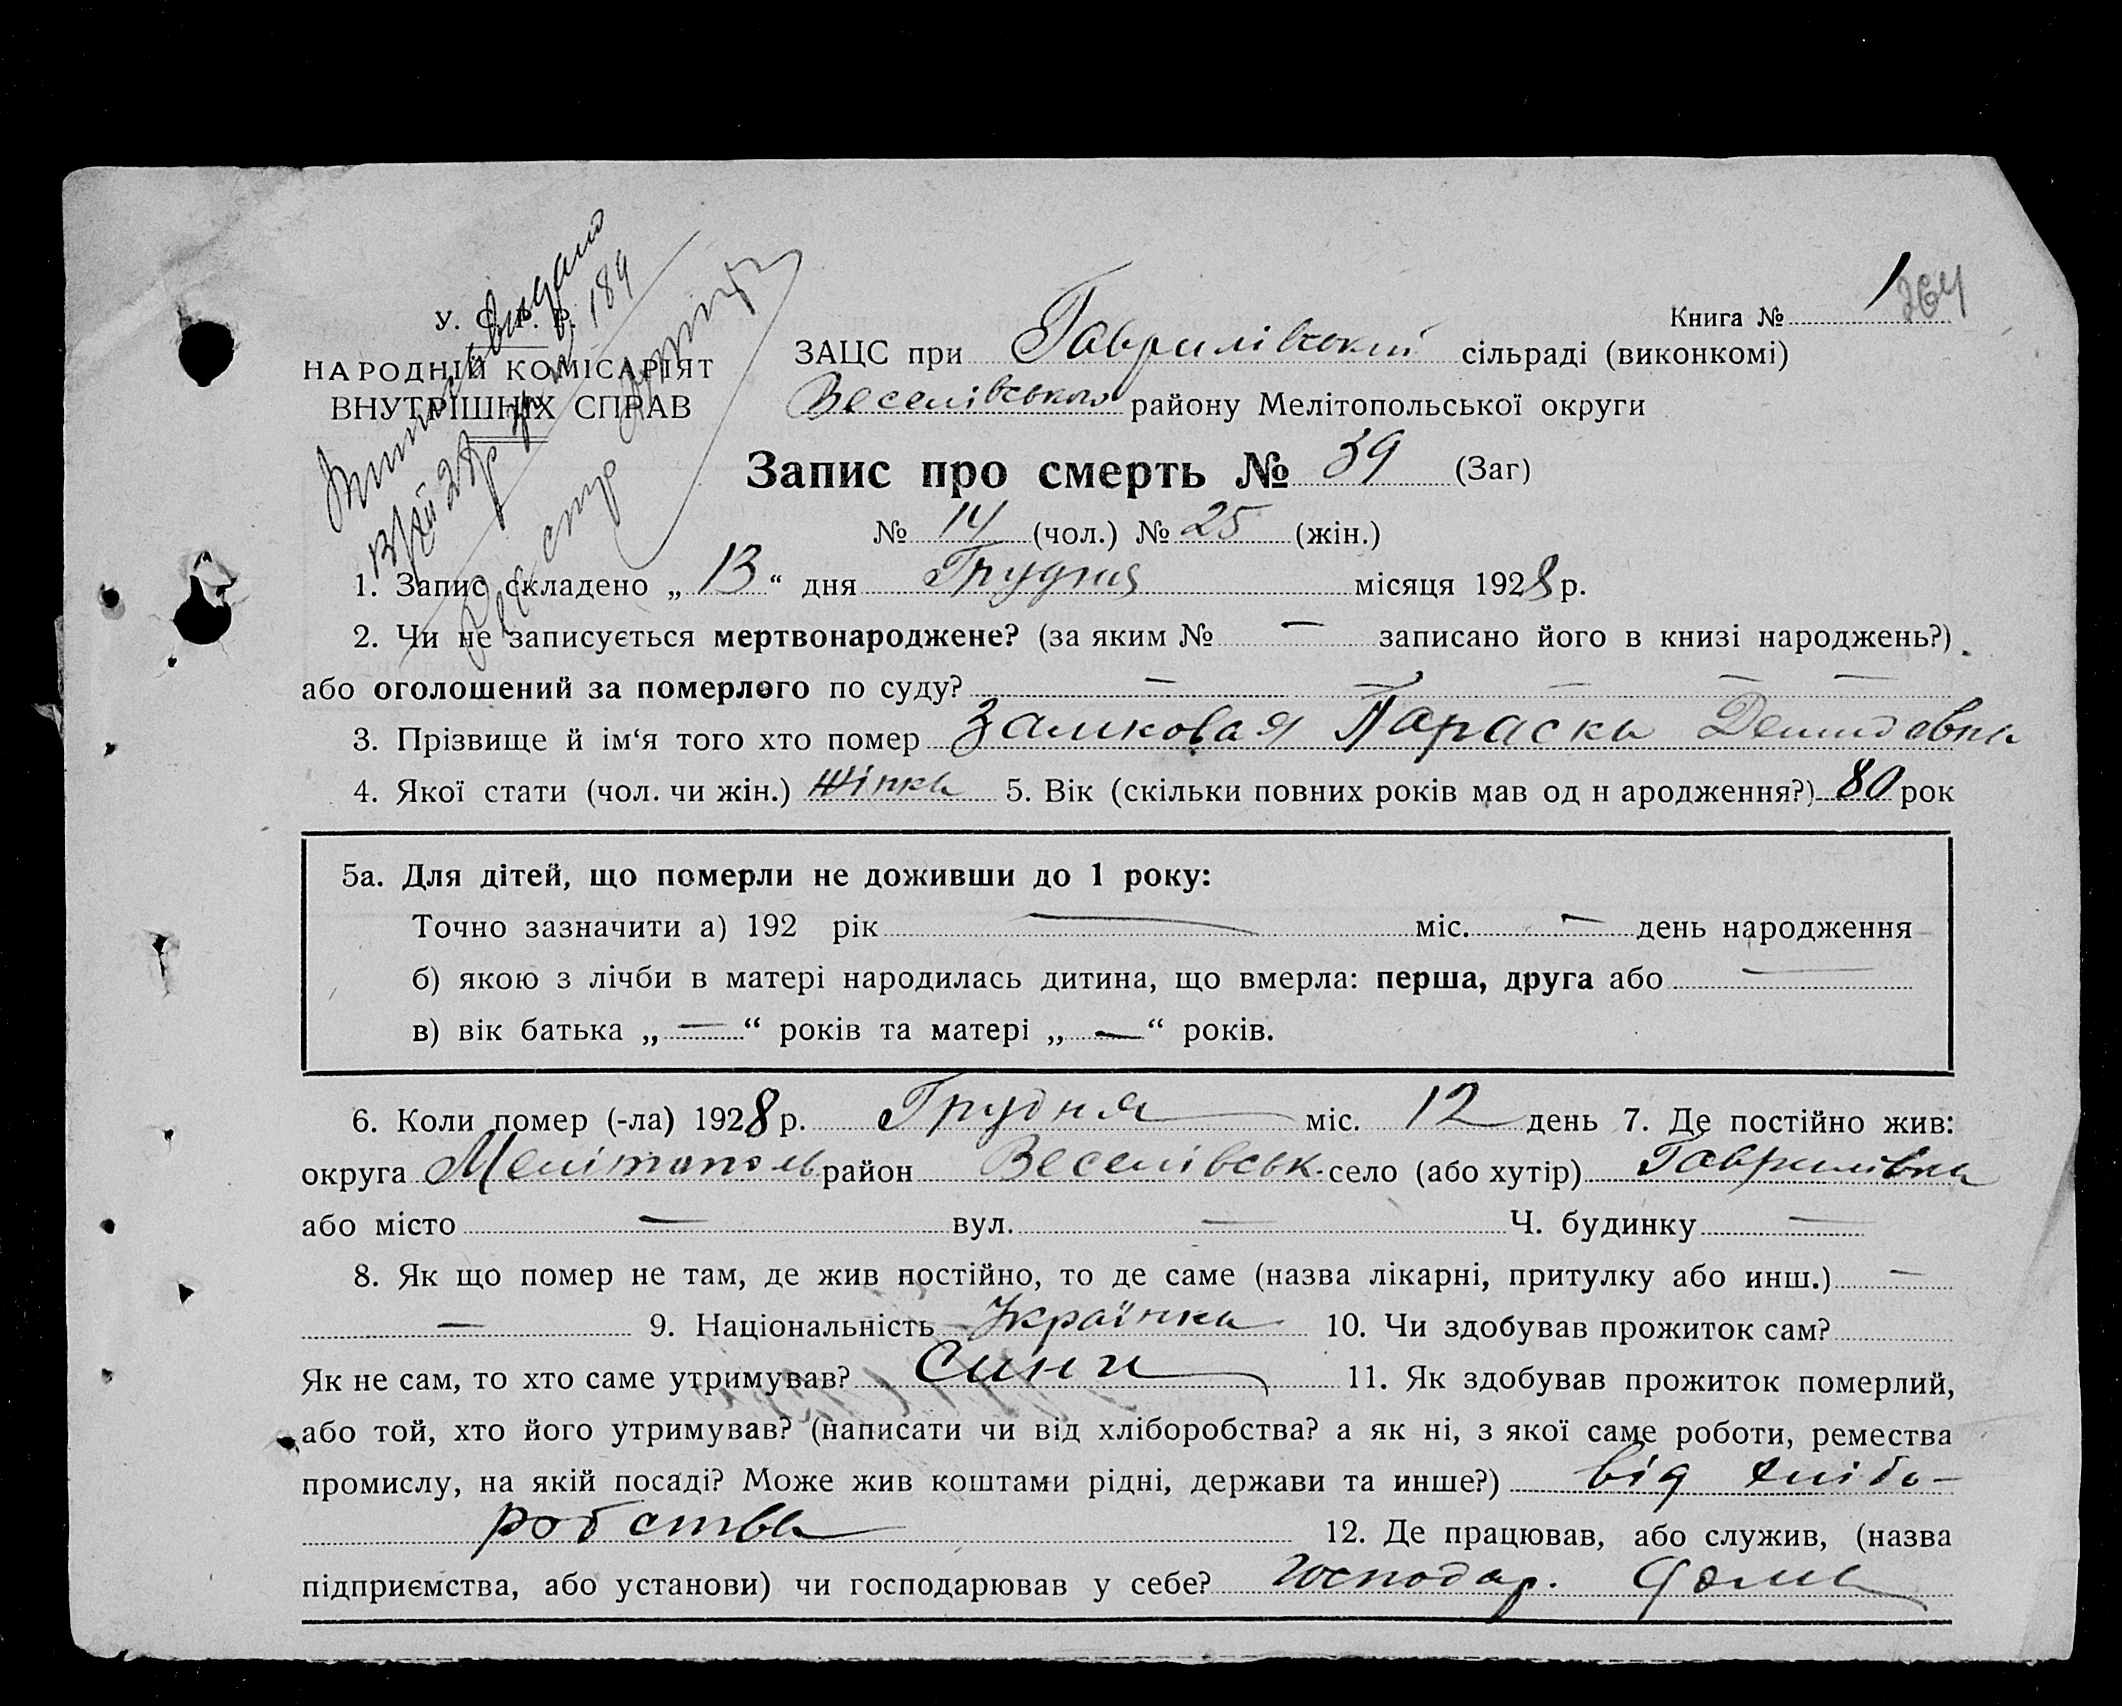 Книга № 1 264
У. С. Р. Р.
НАРОДНІЙ КОМІСАРІЯТ
ВНУТРІШНІХ СПРАВ
ЗАЦС при Гаврилівській сільраді (виконкомі)
Веселівського району Мелітопольської округи
Запис про смерть № 39 (Заг)
№ 14 (чол.) № 25 (жін.)
1. Запис складено „ 13 “ дня Грудня місяця 1928 р.
2. Чи не записується мертвонароджене? (за яким № — записано його в книзі народжень?)
або оголошений за померлого по суду? — — — — —
3. Прізвище й ім‘я того хто помер Замковая Параска Демидовна
4. Якої стати (чол. чи жін.) жінка 5. Вік (скільки повних років мав од н ародження?) 80 рок
5а. Для дітей, що померли не доживши до 1 року:
Точно зазначити а) 192 рік — міс. — день народження
б) якою з лічби в матері народилась дитина, що вмерла: перша, друга або —
в) вік батька „ — “ років та матері „ — “ років.
6. Коли помер (-ла) 1928 р. Грудня міс. 12 день 7. Де постійно жив:
округа Мелітополь район Веселівськ. село (або хутір) Гаврилівка
або місто — вул. — Ч. будинку —
8. Як що помер не там, де жив постійно, то де саме (назва лікарні, притулку або инш.) —
— 9. Національність Українка 10. Чи здобував прожиток сам?
Як не сам, то хто саме утримував? Сини 11. Як здобував прожиток померлий,
або той, хто його утримував? (написати чи від хліборобства? а як ні, з якої саме роботи, ремества
промислу, на якій посаді? Може жив коштами рідні, держави та инше?) від хлібо-
робства 12. Де працював, або служив, (назва
підприємства, або установи) чи господарював у себе? господар. дома